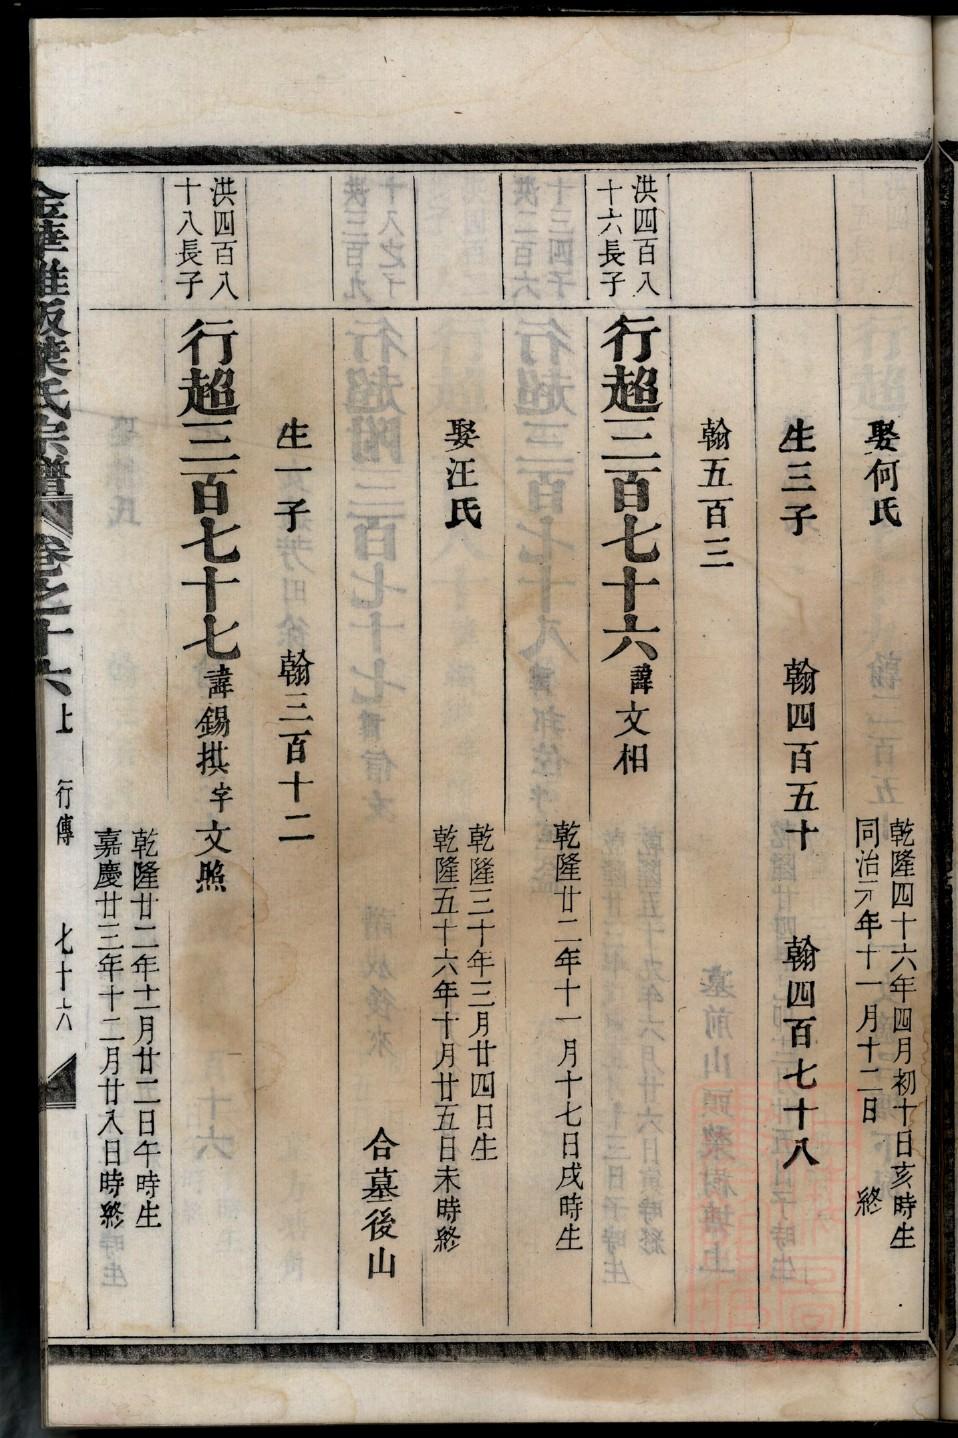 娶何氏
乾隆四十六年四月初十日亥時生
同治元年十一月十二日 終
生三子 翰四百五十 翰四百七十八
翰五百三
洪四百八
十六長子
行超三百七十六 諱文相
乾隆廿二年十一月十七日戌時生
娶汪氏
乾隆三十年三月廿四日生
乾隆五十六年十月廿五日未時終
合墓後山
生一子 翰三百十二
洪四百八
十八長子
行超三百七十七 諱錫拱字文煦
乾隆廿二年十一月廿二日午時生
嘉慶廿三年十二月廿八日時終
金華 葉氏宗譜 卷之十六上 行傳 七十六